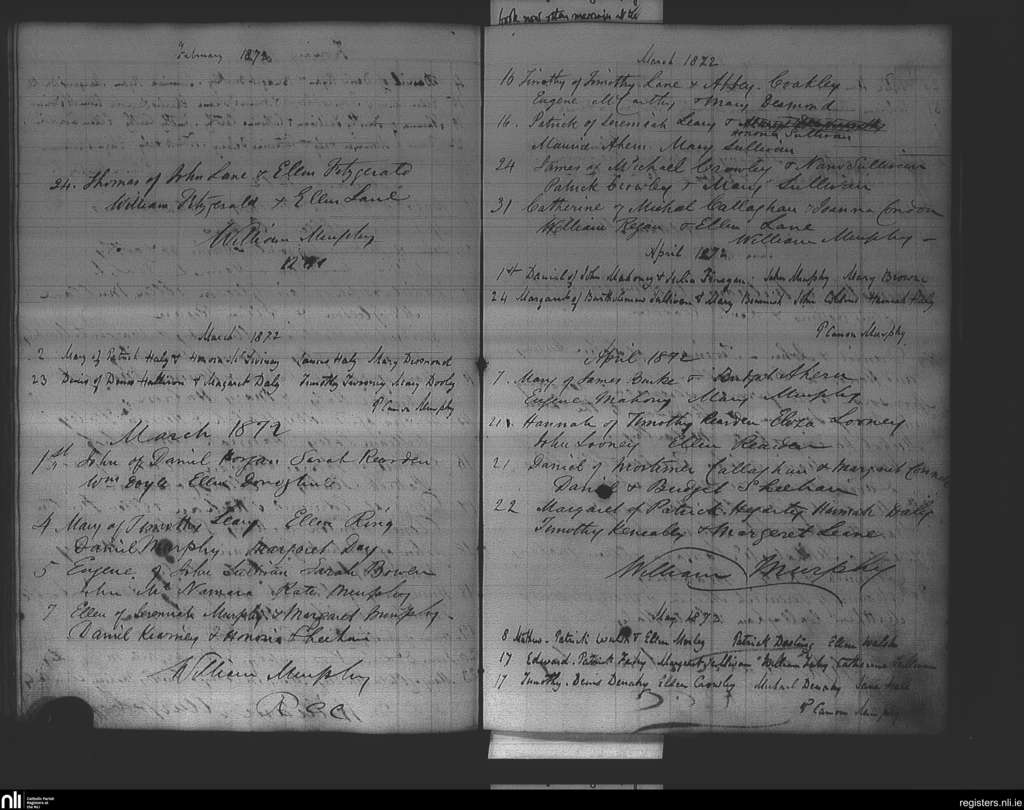 February 1872
24. Thomas of John Lane & Ellen Fitzgerald
William Fitzgerald & Ellen Lane
William Murphy
March 1872
2 Mary of Patrick Haly & Honora McSwiney James Haly Mary Desmond
23 Denis of Denis Halloran & Margaret Daly Timothy Mary Dooly
P Canon Murphy
March 1872
1st John of Daniel Horgan Sarah Rearden
Wm Doyle Ellen Donoghue
4 Mary of Timothy Leary Ellen Ring
Daniel Murphy Margaret Day
5 Eugene of John Sullivan Sarah Bowen
John McNamara Kate Murphy
7 Ellen of Jeremiah Murphy & Margaret Murphy
Daniel Kearney & Honoria Sheehan
William Murphy
R C C
March 1872
10 Timothy of Timothy Lane & Coakley
Eugene McCarthy & Mary Desmond
16. Patrick of Jeremiah Leary &
Honora Sullivan
Maurice Ahern Mary Sullivan
24 James of Michael Crowley & Nano Sullivan
Patrick Crowley & Mary Sullivan
31 Catherine of Michal Callaghan & Joanna Condon
William Regan & Ellen Lane
William Murphy
April 1872
1st Daniel of John Mahony & Julia Finegan John Murphy Mary Browne
24 Margaret of Bartholomew Sullivan & Mary John Collins Hannah Haly
P Canon Murphy
April 1872
7. Mary of James Burke & Bridget Ahern
Eugene Mahony Mary Murphy
21. Hannah of Timothy Rearden Eliza Looney
John Looney Ellen Rearden
21 Daniel of Mortimer Callaghan & Margaret Connell
Daniel & Bridget Sheehan
22 Margaret of Patrick Hegarty Hannah Haly
Timothy Keneally & Margaret Leane
William Murphy
May 1872
8 Mathew. Patrick Walsh & Ellen Morley Patrick Dooling Ellen Walsh
17 Edward. Patrick Fahy Margaret Sullivan William Fahy Catherine Sullivan
17 Timothy. Denis Denahy Ellen Crowley Michael Denahy Jane
P Canon Murphy
nli
Catholic Parish
Registers at
the NLI
registers.nli.ie